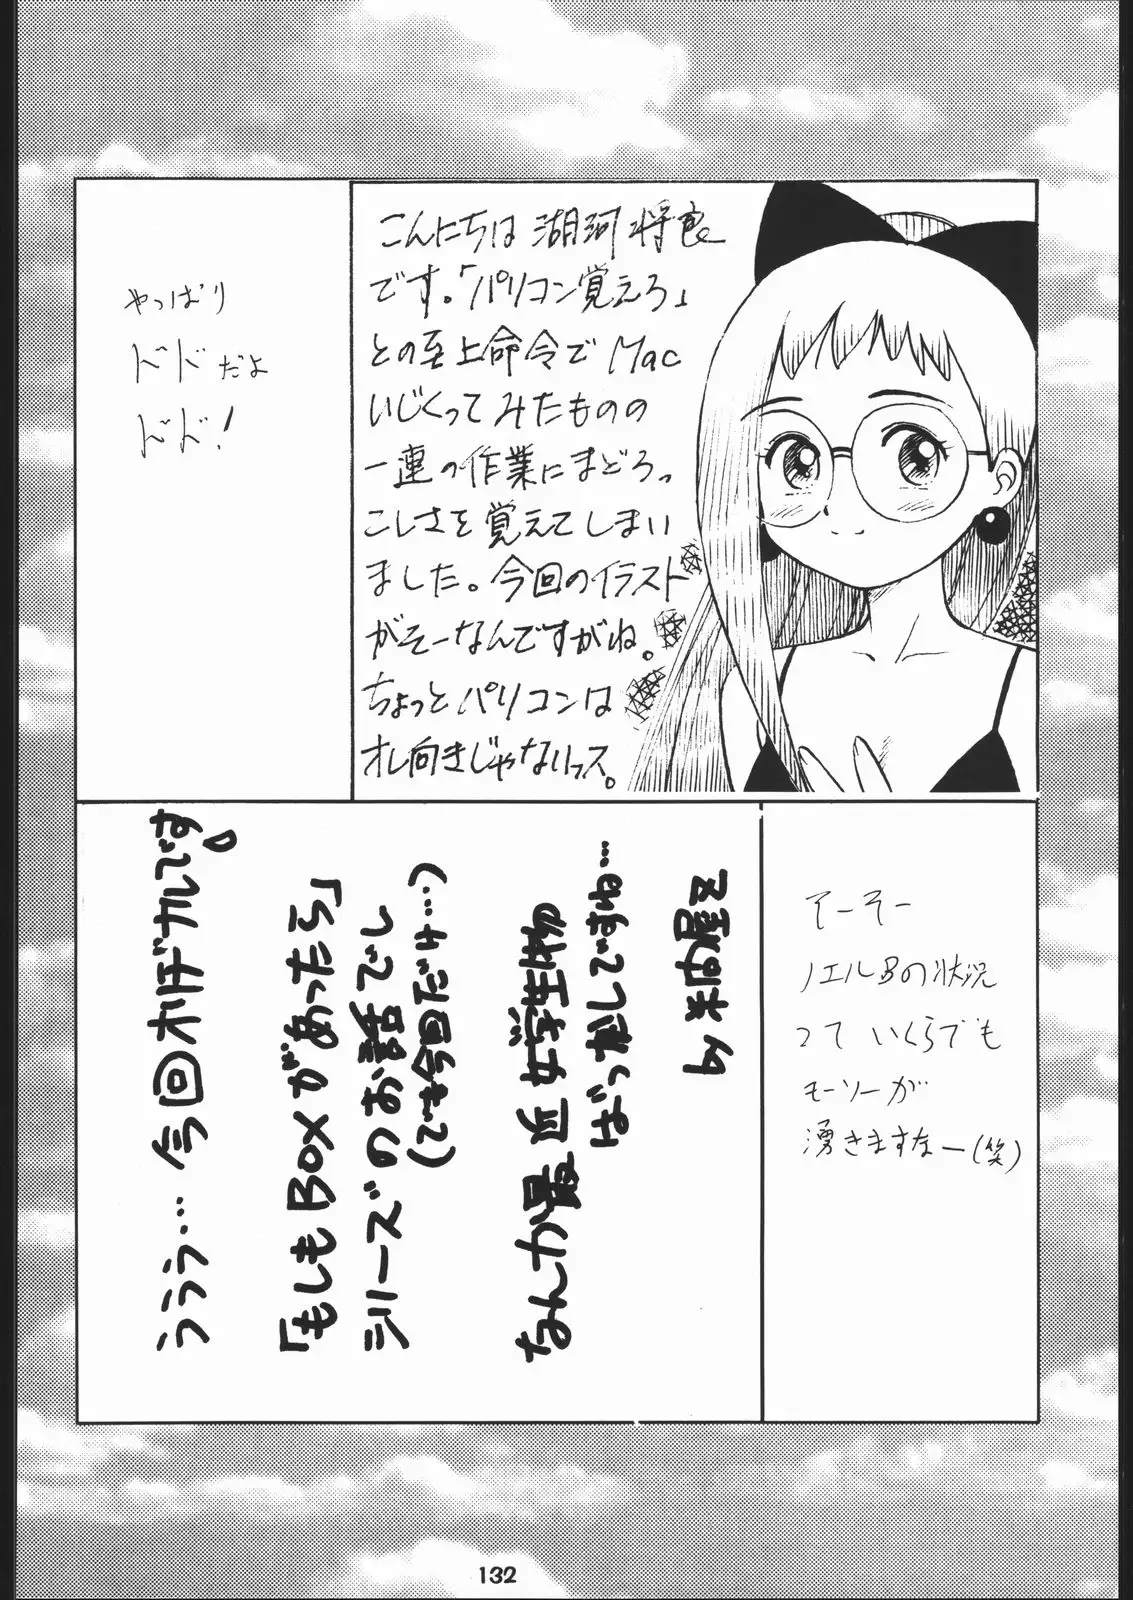 やっぱり
ドドだよ
ドド!
こんにちは 湖河将良
です。「パソコン覚えろ」
との至上命令で Mac
いじくってみたものの
一連の作業にまどろっ
こしさを覚えてしまい
ました。今回のイラスト
がそーなんですがね。
ちょっとパソコンは
オレ向きじゃないっス。
ううう…今回オリジナルです
「もしもBOXがあったら」
シリーズのお話でし
(でも今回だけ…)
なんか最近女学生物
ばっかしですね…
by 米内屋
そーそー
ノエルBの状況
って いくらでも
モーソーが
湧きますなー(笑)
132